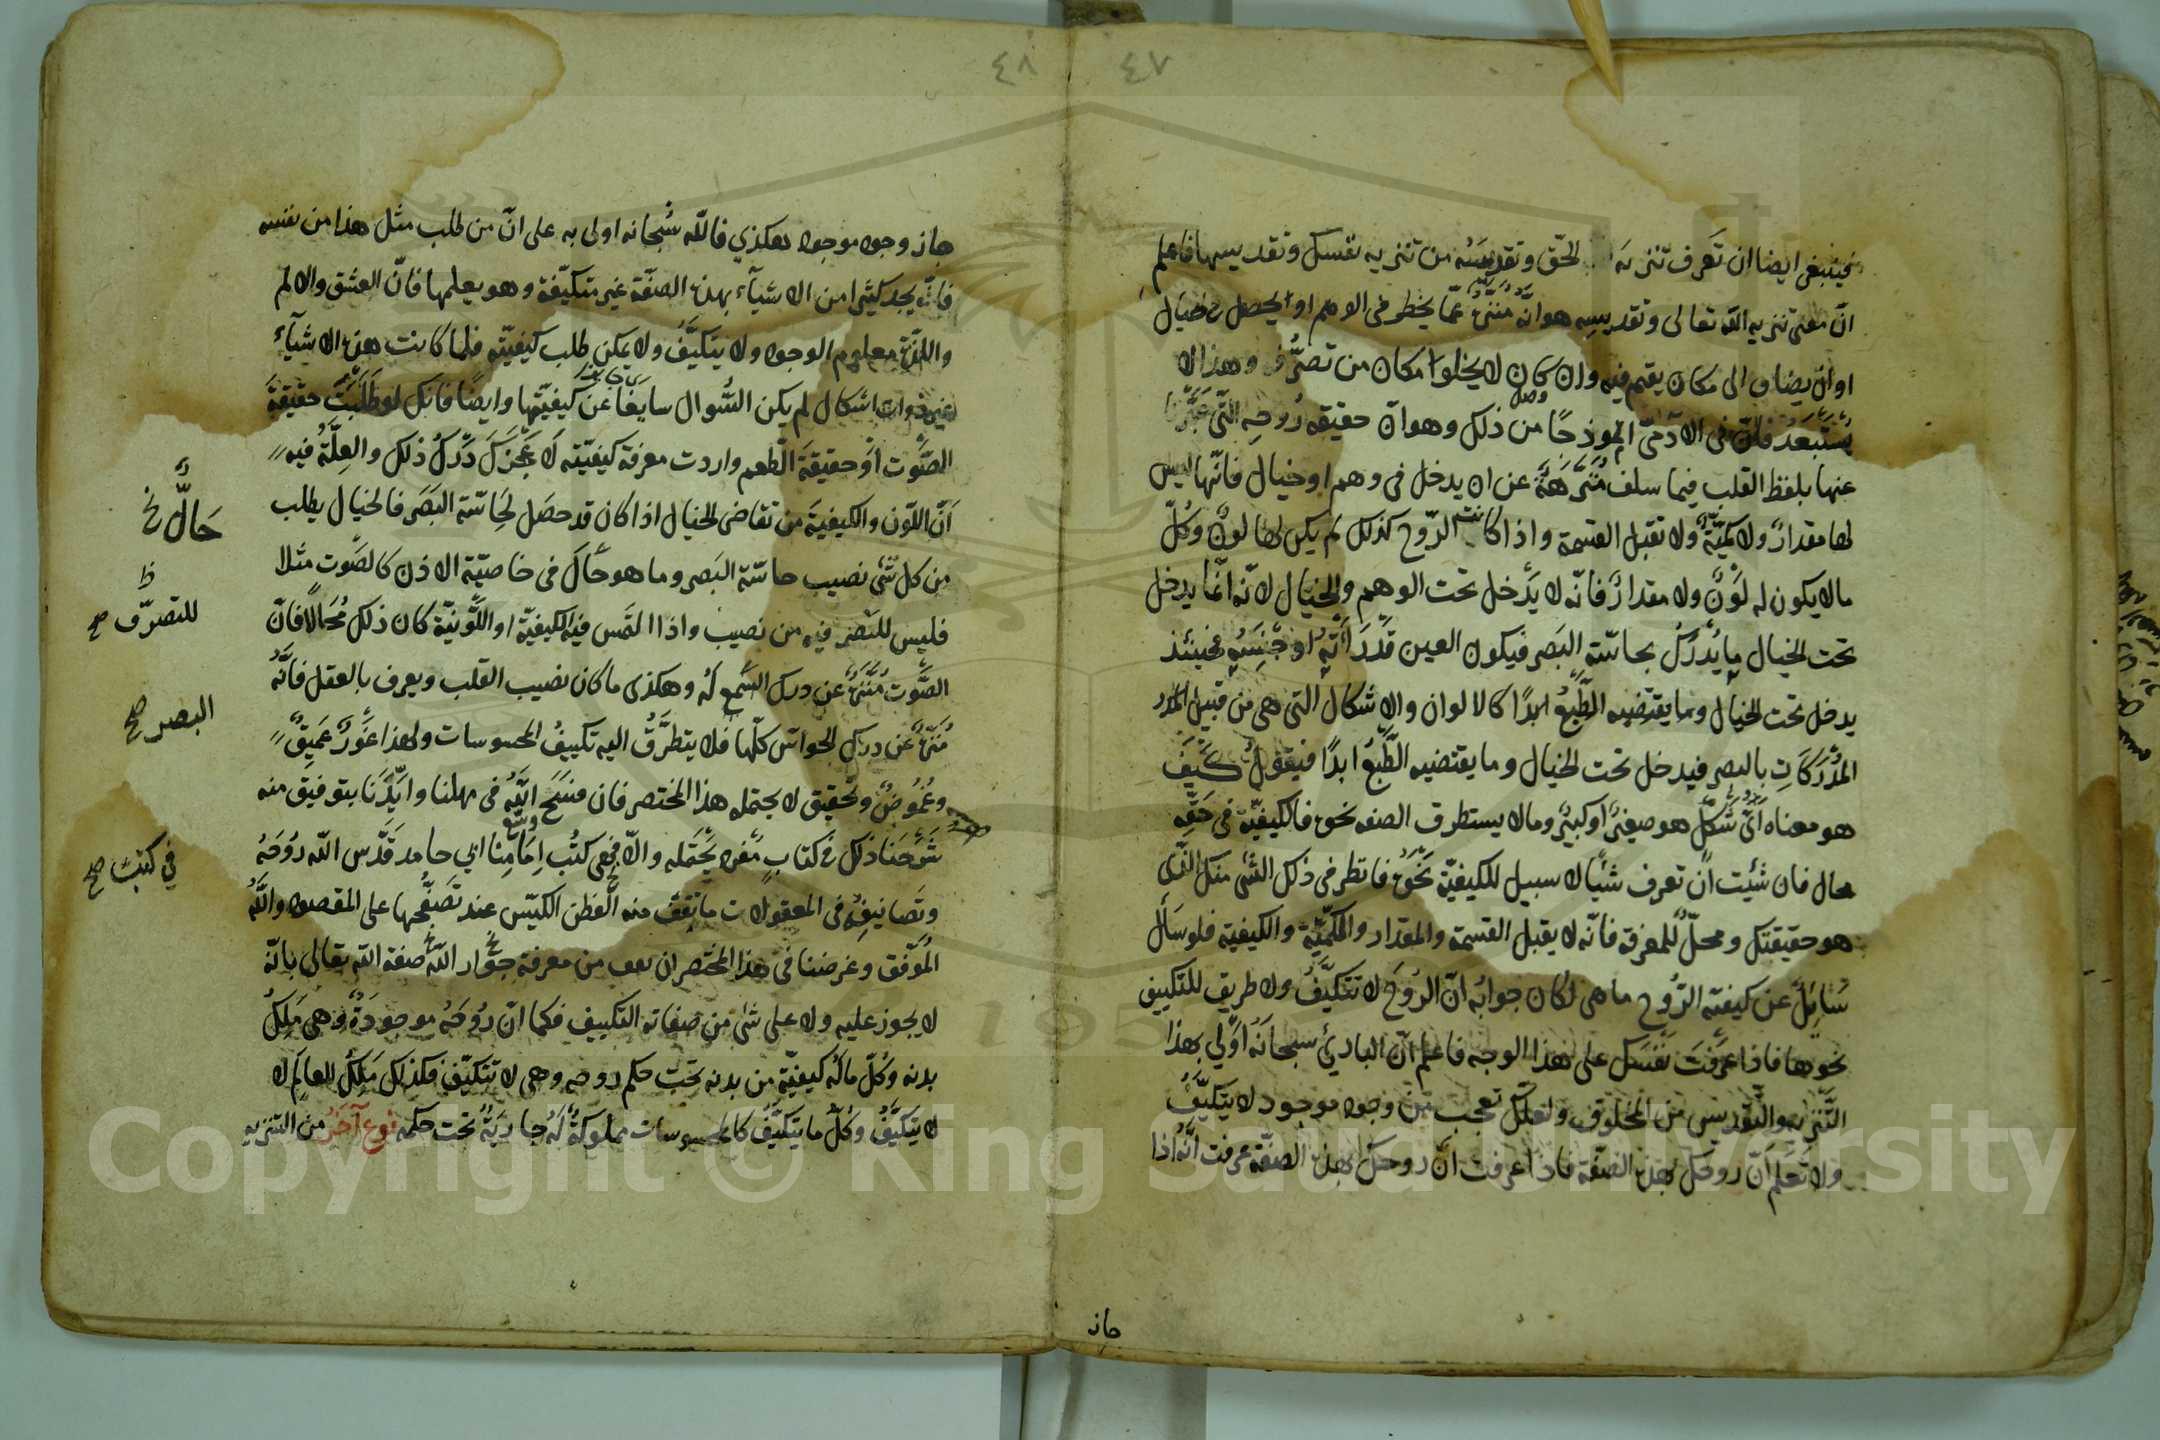 ٤٧
فينبغي ايضا ان تعرف تنزيه الحق وتقديسه من تنزيه نفسك وتقديسها فاعلم
انّ معنى تنزيه الله تعالى وتقديسه هو انّه مُنزّه عمّا يخطر في الاوهم او يحصل في خيال
او ان يضاف الى مكان يقيم فيه وان كان لا يخلوا مكان من تصرُّفه وهذا لا
يُسْتَبعَد فانّ في الآدميّ انموذجًا من ذلك وهو انّ حقيقه رُوحِه التي عَبَّرنا
عنها بلفظ القلب فيما سلف مُنزَّهَةٌ عن ان يدخل في وهم او خيال فانّها ليس
لها مقدارٌ ولا كميّةٌ ولا تقبل القسمة واذا كانت الرّوح كذلك لم يكن لها لونٌ وكُلّ
مالا يكون له لَوْنٌ ولا مقدارٌ فانّه لا يَدْخل تحت الوهم والخيال لانّه انّما يدخل
تحت الخيال ما يُدْرَكُ بحاسّة البَصر فيكون العين قد رَأَتْهُ او جنسه فحينئذ
يدخل تحت الخيال وما يقتضيه الطَّبعُ ابدًا كالالوان والاشكال التي هي من قبيل
المُدْرَكَاتِ بالبصر فيدخل تحت الخيال وما يقتضيه الطَّبعُ ابدًا فيقول كَيْفَ
هو معناه اَىُّ شَكلٍ هو صغيرٌ او كبيرٌ وما لا يستطرق الصفه نحوه فالكيفيّة في حَقّه
محال فان شئت ان تعرف شيًا لا سبيل للكيفيّة نَحْوَهُ فانظر في ذلك الشّئ منك الذى
هو حقيقتك ومحلٌّ للمعرفة فانّه لا يقبل القسمة والمقدار والكميّة والكيفية فلو سَأل
سَائِلٌ عن كيفيّة الرُّوح ما هي لكان جوابُه انّ الرُوحَ لا تتكيّفُ ولا طريق للتكييف
نحوها فاذا عرَفتَ نَفْسَكَ على هذا الوجه فاعلم انّ البارئ سبحانَهُ اَوْلى بهذا
التَّنْزيه والتقديس من المخلوق ولعلّك تعجب من وجود موجود لا يتكيَّفُ
ولا تَعْلم اَنّ روحك بهذه الصّفة فاذا عرفت انّ روحك بهذه الصفّة عرفت انّه اذا
جاز
٤٨
جاز وجود موجود هكذي فالله سُبحانه اولى به على انّ من طلب مثل هذا من نفسه
فانّه يجد كثيرا من الاشيآء بهذه الصفة غير متكيّفة وهو يعلمها فانّ العشق والالم
واللذّة معلوم الوجود ولا يتكيَّفُ ولا يمكن طلب كيفيّته فلما كانت هذه الاشيآءُ
غير ذوات اشكال لم يكن السُّوال سايغًا عن كيفيّتها وايضًا فانّك لو طَلَبْتَ حقيقةَ
الصَّوت اَوْ حقيقةَ الطعم واردت معرفة كيفيّته لاَعْجَزَكَ دَرْكُ ذلك والعِلَّةُ فيه
اَنّ اللّون والكيفيّة من تقاضى الخيال اذا كان قد حصَل لحَاسّة البَصَر فالخيال يطلب
من كل شئ نصيب حاسّة البَصر وما هو حَالٌ في خاصيّة الاذن كالصَّوت مثلا
فليس للبَصَر فيه من نصيب واذا التمَس فيه الكيفيّة او اللَّوْنيّة كان ذلك مُحَالاً فانّ
الصَّوت مُنَزَّهٌ عن درك السَّمع لهُ وهكذى ما كان نصيب القلب ويعرف بالعقل فانّهُ
مُنزّهٌ عن درك الحواسّ كلّها فلا يتطرَّقُ اليه تكييفُ المحسوسات ولهذا غَوْرٌ عَمِيقٌ
وغُمُوضٌ وتحقيق لا يحتمله هذا المختصر فان فسَحَ الله في مهلنا وايّدَنَا بتوفيق منه
شَرَحْنا ذلك في كتابٍ مُفرد يَحْتَمله والاّ ففي كتُب اِمَامِنا ابي حامد قَدّس الله رُوحَهُ
وتَصانيفِهِ في المعقولات ما يقف منه الفطن الكيّس عند تَصَفُّحِها على المقصود واللهُ
المُوَفّق وغرضنا في هذا المختصر ان من معرفة صفة الله تعالى بانّهُ
لا يجوز عليه ولا على شئ من صفاته التكييف فكما انّ رُوحَهُ موجودَةٌ وهي مَلِكُ
بدنه وَكُلّ مالَهُ كيفيّة من بدنه تحت حكم روحه وهي لا تتكيّف فكذلك مَلِكُ العالَم لا
لا يتكيَّفُ وكُلّ ما يتكيَّفُ كالمحسوسات مملوكةٌ لَهُ جاريَةٌ تحت حكمه نوعٌ آخَرُ من التنزيه
حَالٌّ خ
للتصرّف صح
البصر صح
في كتب صح
Copyright © King Saud University